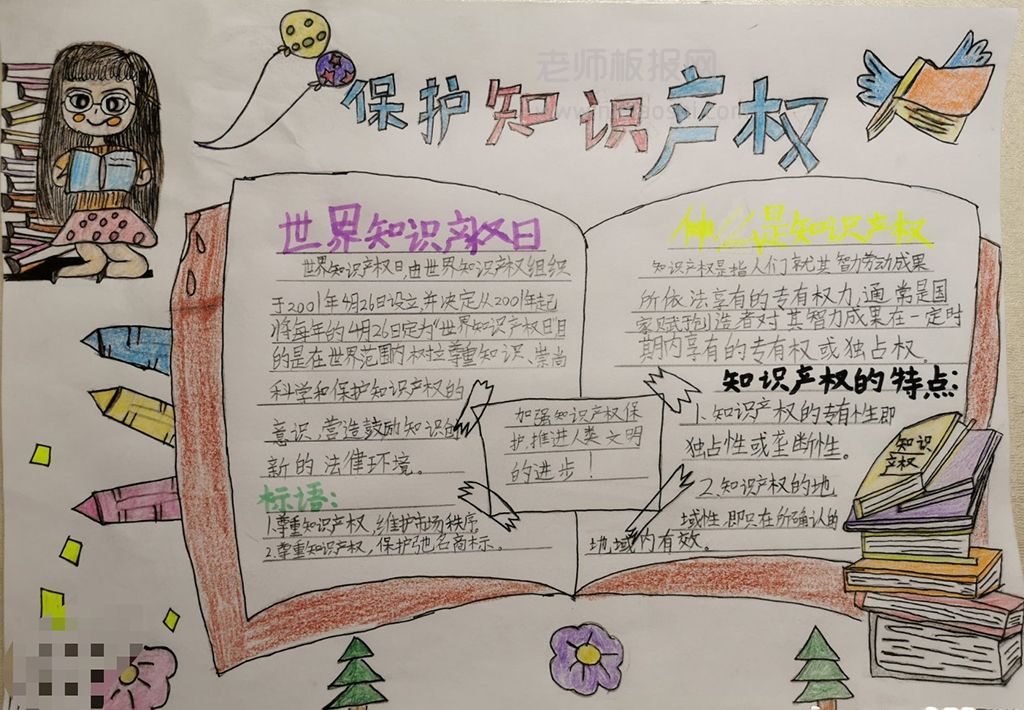 老师板报网
保护知识产权
世界知识产权日
世界知识产权日由世界知识产权组织
于2001年4月26日设立,并决定从2001年起
将每年的4月26日定为"世界知识产权日"目
的是在世界范围内权拉尊重知识、崇尚
科学和保护知识产权的
意识,营造鼓励知识的
新的法律环境。
标语:
1.尊重知识产权,维护市场秩序
2.尊重知识产权,保护弛名商标。
加强知识产权保
护,推进人类文明
的进步!
什么是知识产权
知识产权是指人们就其智力劳动成果
所依法享有的专有权力,通常是国
家赋予创造者对其智力成果在一定时
期内享有的专有权或独占权。
知识产权的特点:
1.知识产权的专有性即
独占性或垄断性。
2.知识产权的地
域性,即只在所确认的
地域内有效。
知识
产权